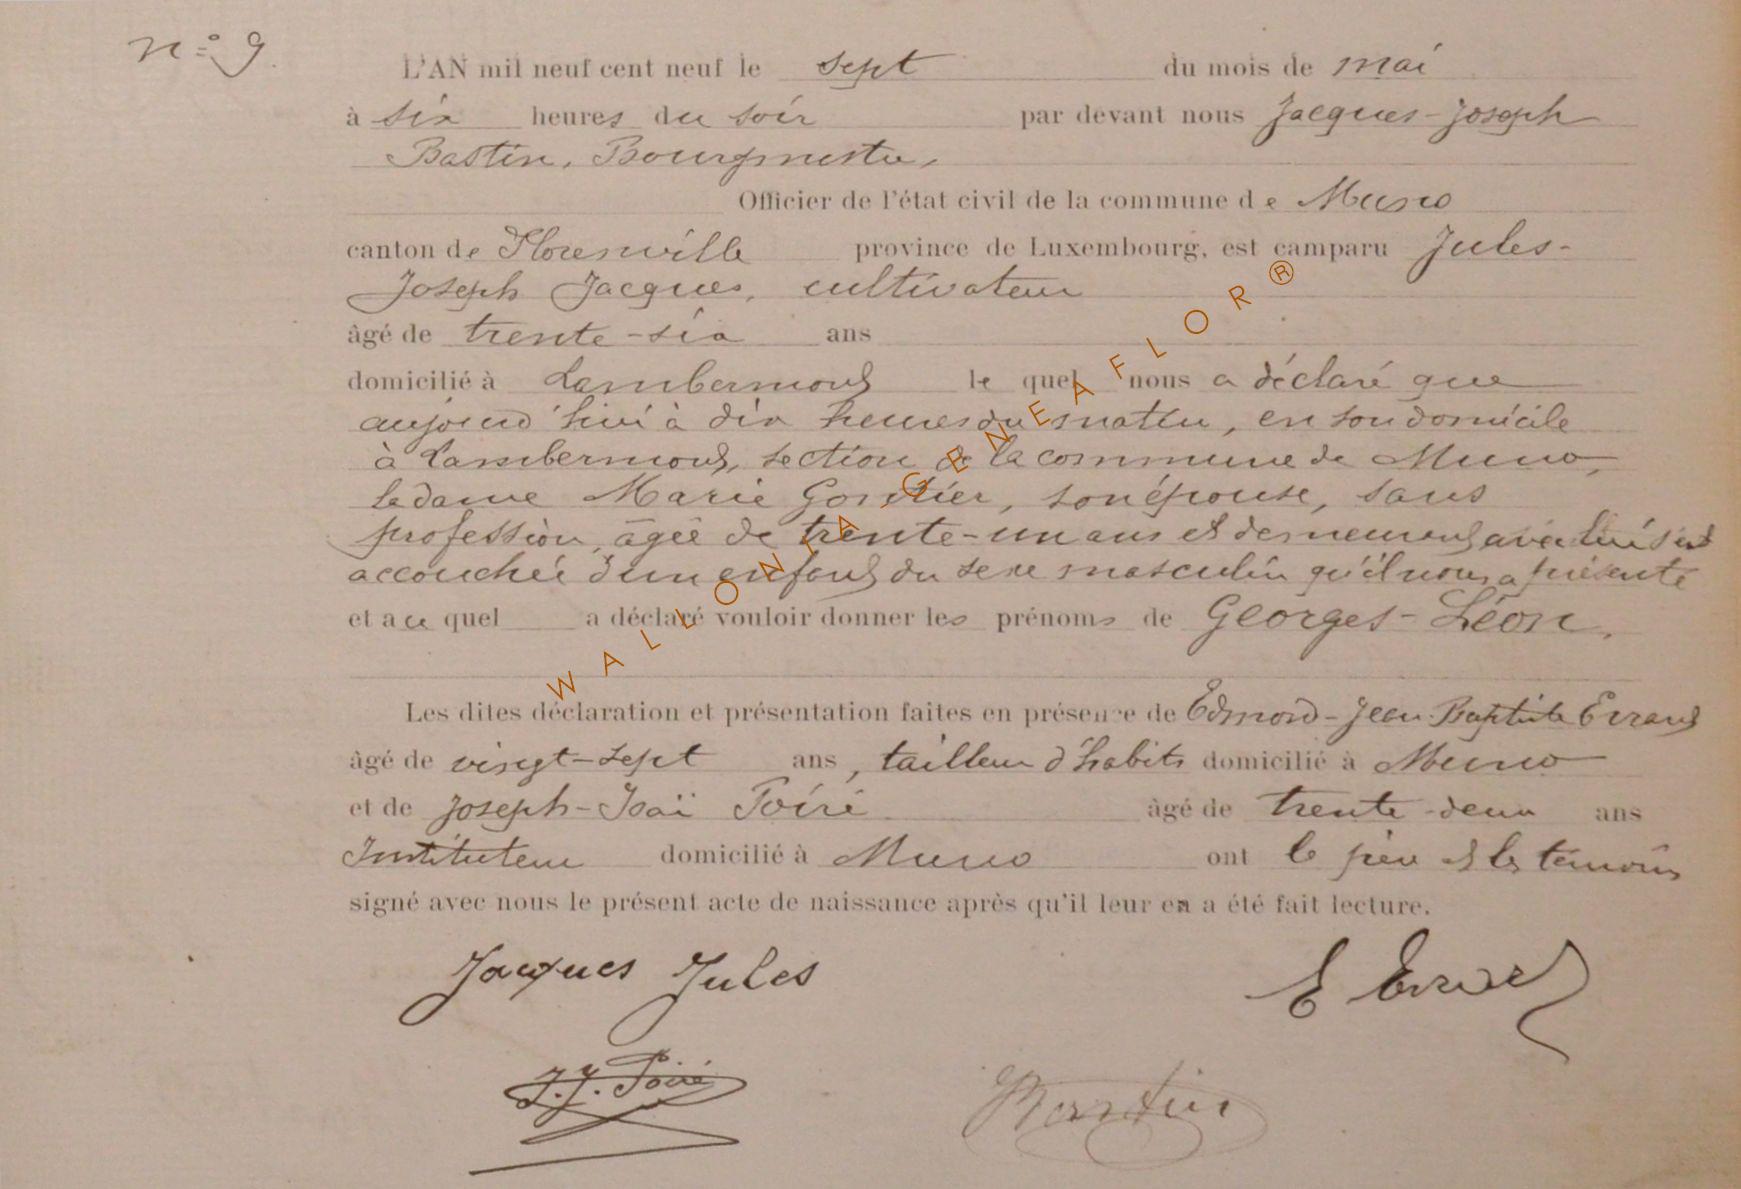 n° 9.
L'AN mil neuf cent neuf le sept du mois de mai
à six heures du soir par devant nous Jacques-Joseph
Bastin, Bourgmestre,
Officier de l'état civil de la commune de Muno
canton de Florenville province de Luxembourg, est camparu Jules-
Joseph Jacques, cultivateur
âgé de trente-six ans
domicilié à Lambermont le quel nous a déclaré que
aujourd'hui à dix heures du matin, en son domicile
à Lambermont, section de la commune de Muno,
la dame Marie Gonthier, son épouse, sans
profession, âgée de trente-un ans et demeurant avec lui est
accouchée d'un enfant du sexe masculin qu'il nous a présenté
et au quel a déclaré vouloir donner les prénoms de Georges-Léon.
Les dites déclaration et présentation faites en présence de Edmond-Jean Baptiste Errard
âgé de vingt-sept ans, tailleur d'habits domicilié à Muno
et de Joseph-Isaï Poiré âgé de trente-deux ans
Instituteur domicilié à Muno ont le père et les témoins
signé avec nous le présent acte de naissance après qu'il leur en a été fait lecture.
Jacques Jules E Errard
J.J. Poiré Bastin
WALLONIA.GENEAFLOR®